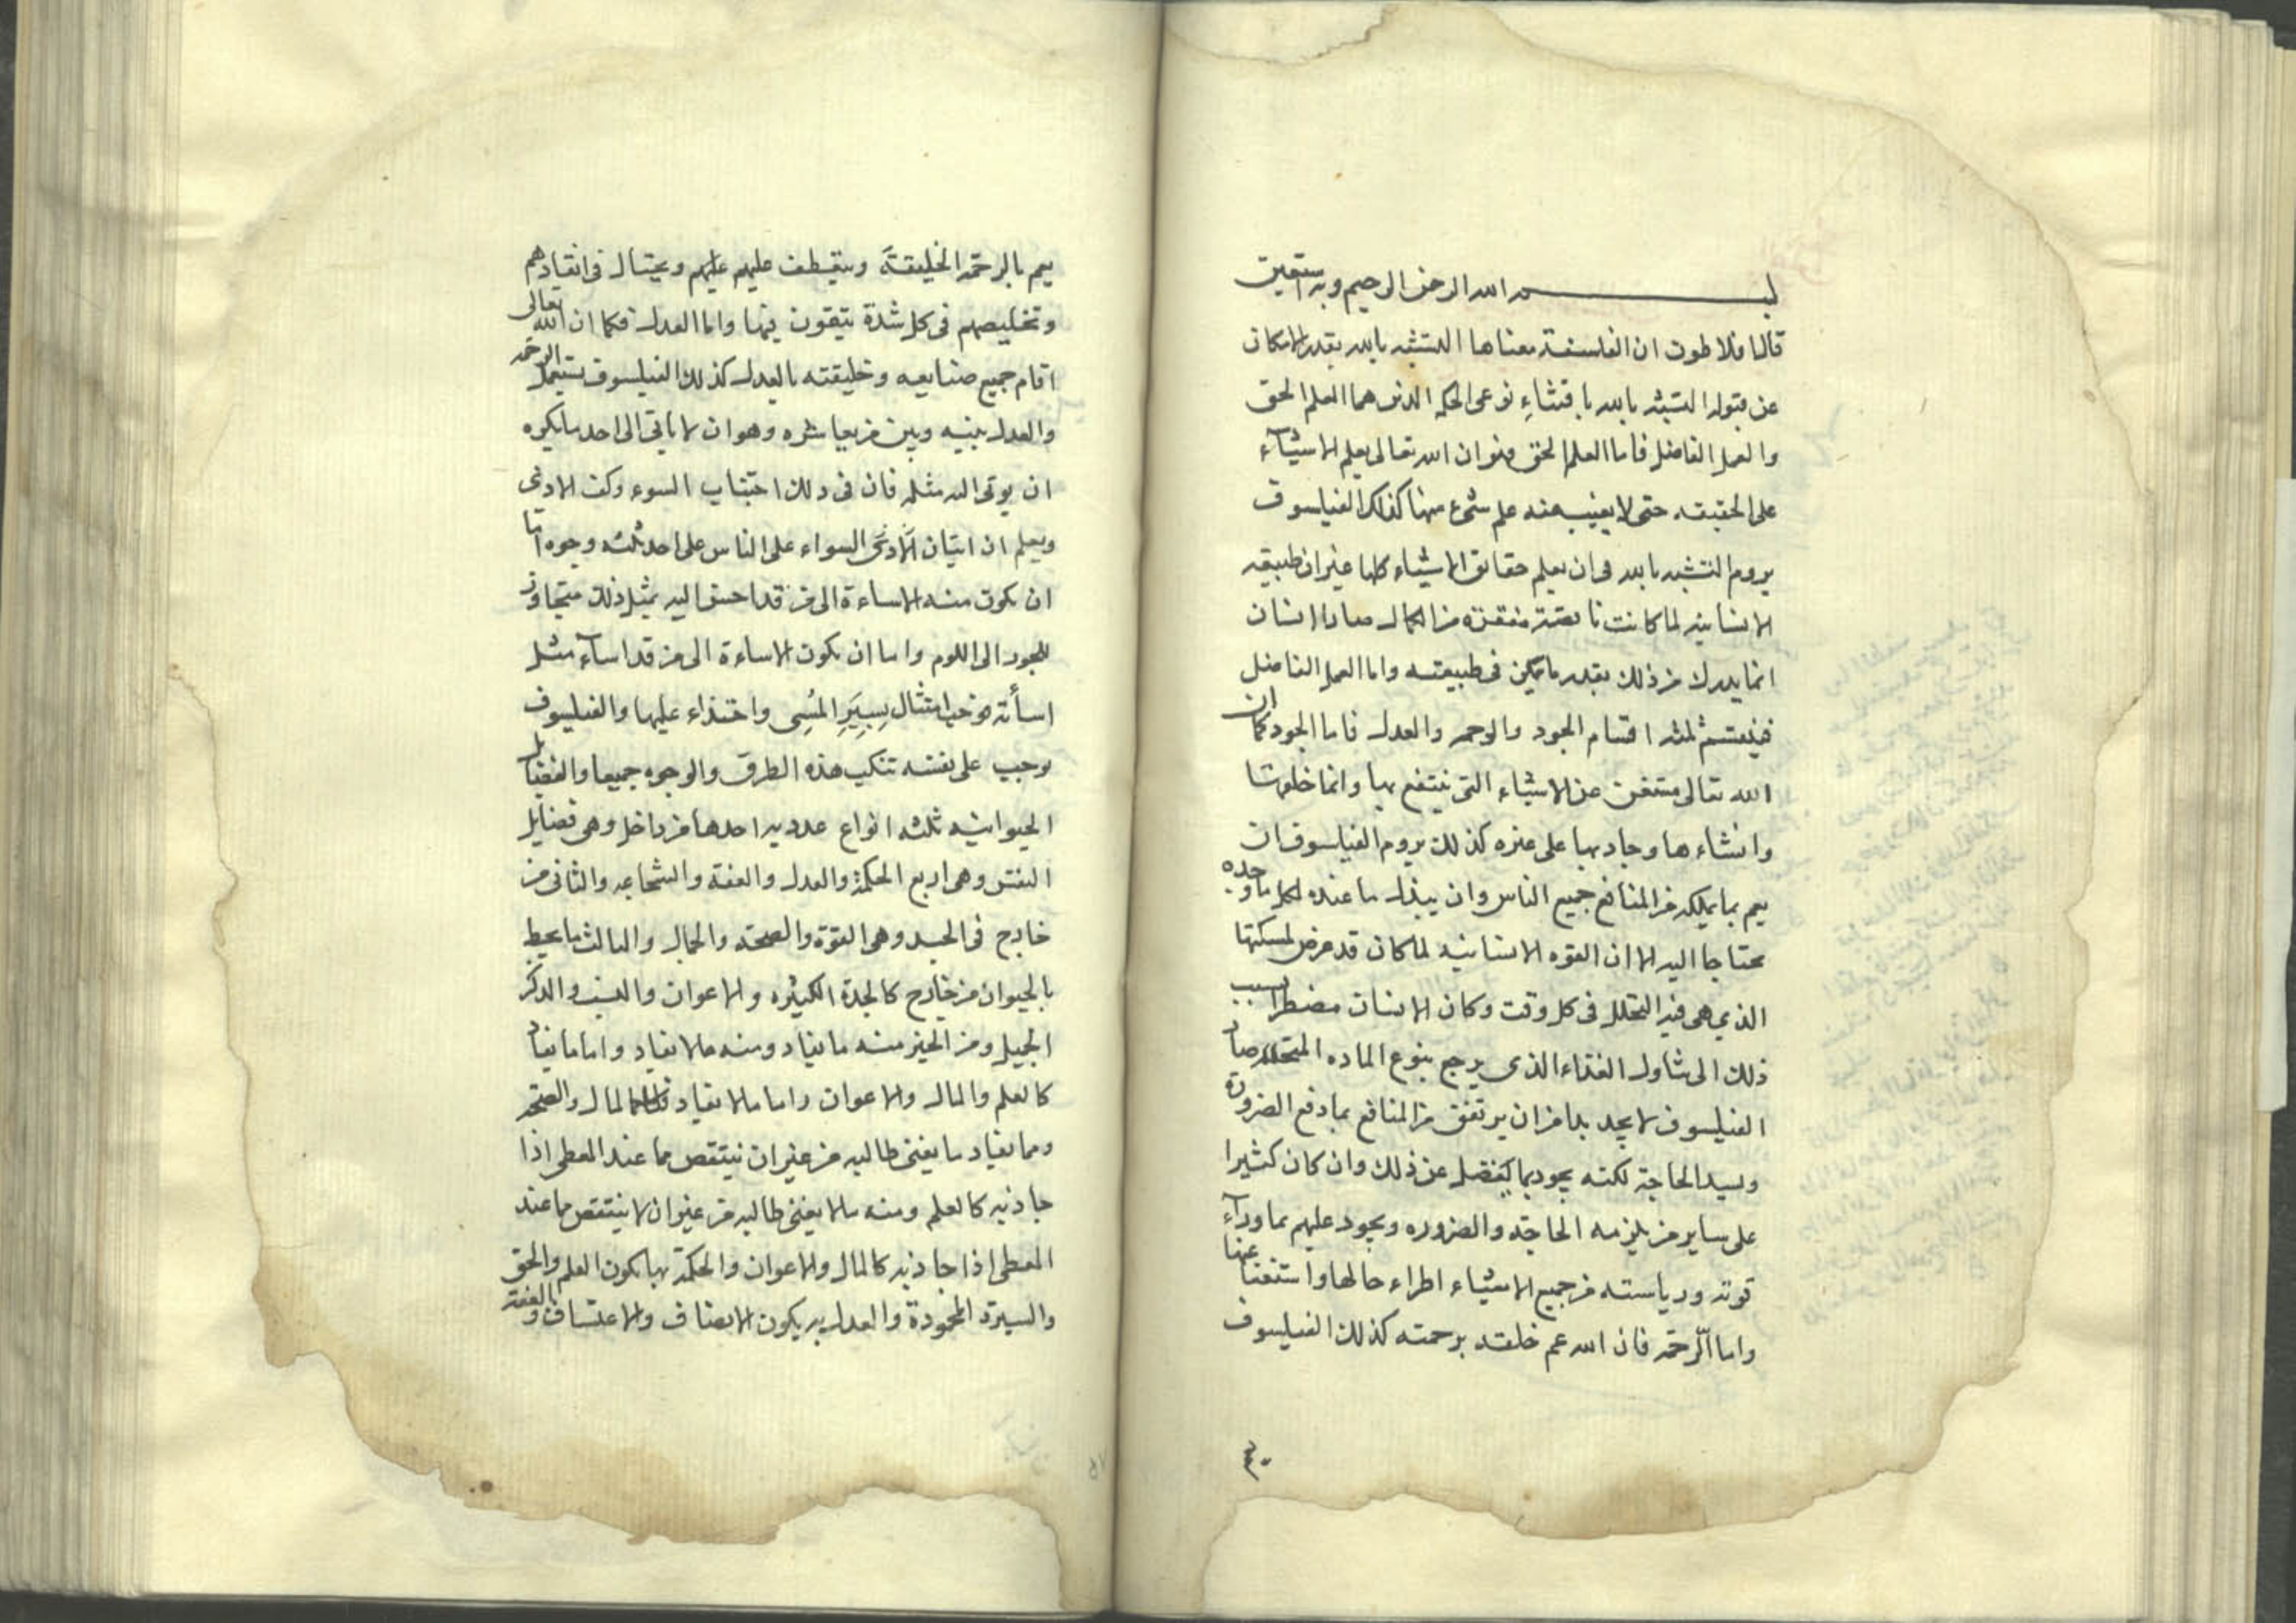 بسم الله الرحمن الرحيم وبه استعين
قال افلاطون ان الفلسفة معناها التشبه بالله بقدر الامكان
عن بقوله التشبه بالله باقتناء نوعى الحكمه الذىن هما العلم الحق
والعمل الفاضل فاما العلم الحق فهو ان الله تعالى يعلم الاشيآء
على الحقيقه حتى لا يغيب عنه علم شىء منها كذلك الفيلسوف
يروم التشبه بالله فى ان يعلم حقايق الاشياء كلها غير ان طبيعه
الانسانيه لما كانت ناقصة من الكمال صار الانسان
انما يدرك من ذلك بقدر ما يمكن فى طبيعته واما العمل الفاضل
فينقسم ثلثه اقسام الجود والرحمه والعدل فاما الجود فكما ان
الله تعالى مستغن عن الاشياء التى ينتفع بها وانما خلقها
وانشاءها وجاد بها على غيره كذلك يروم الفيلسوف ان
يعم بما يملكه من المنافع جميع الناس وان يبذل ما عنده لكل ما وجده
محتاجا اليه الا ان القوه الانسانيه لما كان قد عرض لمسكنها
الذي هى فيه التحلل فى كل وقت وكان الانسان مضطرا بسبب
ذلك الى تناول الغذاء الذى يرجع بنوع الماده المتحلله صار
الفيلسوف لا يجد بدا من ان يرتفق من المنافع بما دفع الضرورة
وسد الحاجة لكنه يجود بما يفضل عن ذلك وان كان كثيرا
على ساير من يلزمه الحاجة والضروره ويجود عليهم بما ورآء
قوته ورياسته من جميع الاشياء اطراء حالها واستغنا عنها
واما الرحمة فان الله عم خلقه برحمته كذلك الفيلسوف
٤٠
يعم بالرحمة الخليقة ويتعطف عليهم عليهم ويحتال فى انقيادهم
وتخليصهم فى كل شدة يتقون فيها واما العدل فكما ان الله تعالى
اقام جميع صنايعه وخليقته بالعدل كذلك الفيلسوف يستعمل الرحمة
والعدل بينه وبين من يعاشره وهو ان لا ياتى الى احد ما يكره
ان يوتى اليه مثله فان فى ذلك اجتناب السوء وكف الاذى
ويعلم ان اتيان الاذى السواء على الناس على احد ثلثه وجوه اما
ان يكون منه الاساءة الى من قد احسن اليه بمثل ذلك متجاوز
للجور الى اللوم واما ان يكون الاساءة الى من قد اسآء مثل
اسأته فوجب امتثال بسير المسى واحتذاء عليها والفيلسوف
يوجب على نفسه تنكب هذه الطرق والوجوه جميعا والفضايل
الحيوانيه ثلثه انواع عدديه احدها من داخل وهى فضايل
النفس وهى اربع الحكمة والعدل والعفة والشجاعه والثانى من
خارج فى الجسد وهى القوة والصحة والجمال والثالث ما يحيط
بالحيوان من خارج كالجدة الكثيره والاعوان والنسب والذكر
الجميل ومن الخير منه ما يفاد ومنه ما لا يفاد واما ما يفاد
كالعلم والمال والاعوان واما ما لا يفاد المال والصحة
ومما يفاد ما يغنى طالبه من غير ان ينتقص مما عند المعطى اذا
جاذبه كالعلم ومنه ما لا يغنى طالبه من غير ان لا ينتقص مما عند
المعطى اذا جاذبه كالمال والاعوان والحكمة بها يكون العلم والحق
والسيرة المحمودة والعدل به يكون الانصاف والاعتساف وبالعفة